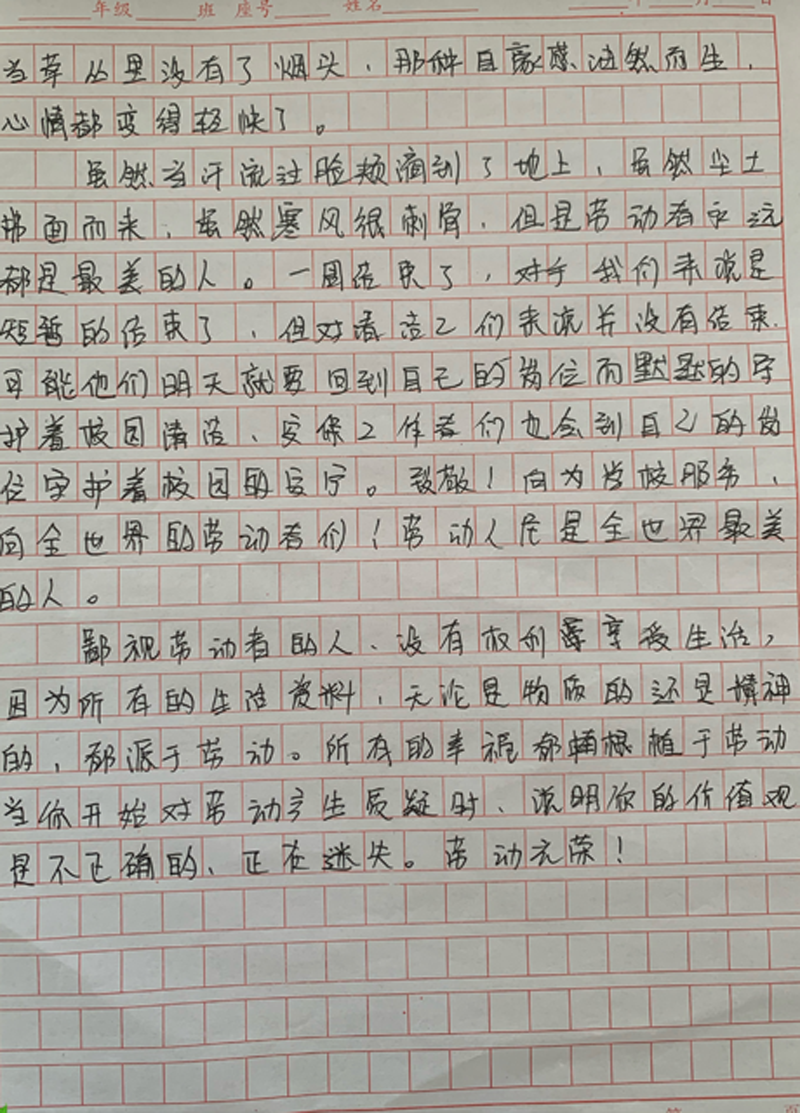 年级 班 座号 姓名
当草丛里没有了烟头，那种自豪感油然而生，
心情都变得轻快了。
虽然当汗流过脸颊滴到了地上，虽然尘土
拂面而来，虽然寒风很刺骨，但是劳动者永远
都是最美的人。一周结束了，对于我们来说是
短暂的结束了，但对清洁工们来说并没有结束，
可能他们明天就要回到自己的岗位而默默的守
护着校园清洁、安保工作者们也会到自己的岗
位守护着校园的安宁。致敬！向为学校服务，
向全世界的劳动者们！劳动人民是全世界最美
的人。
鄙视劳动者的人、没有权利享受生活，
因为所有的生活资料，无论是物质的还是精神
的，都源于劳动。所有的幸福都根植于劳动
当你开始对劳动产生质疑时、说明你的价值观
是不正确的、正在迷失。劳动光荣！